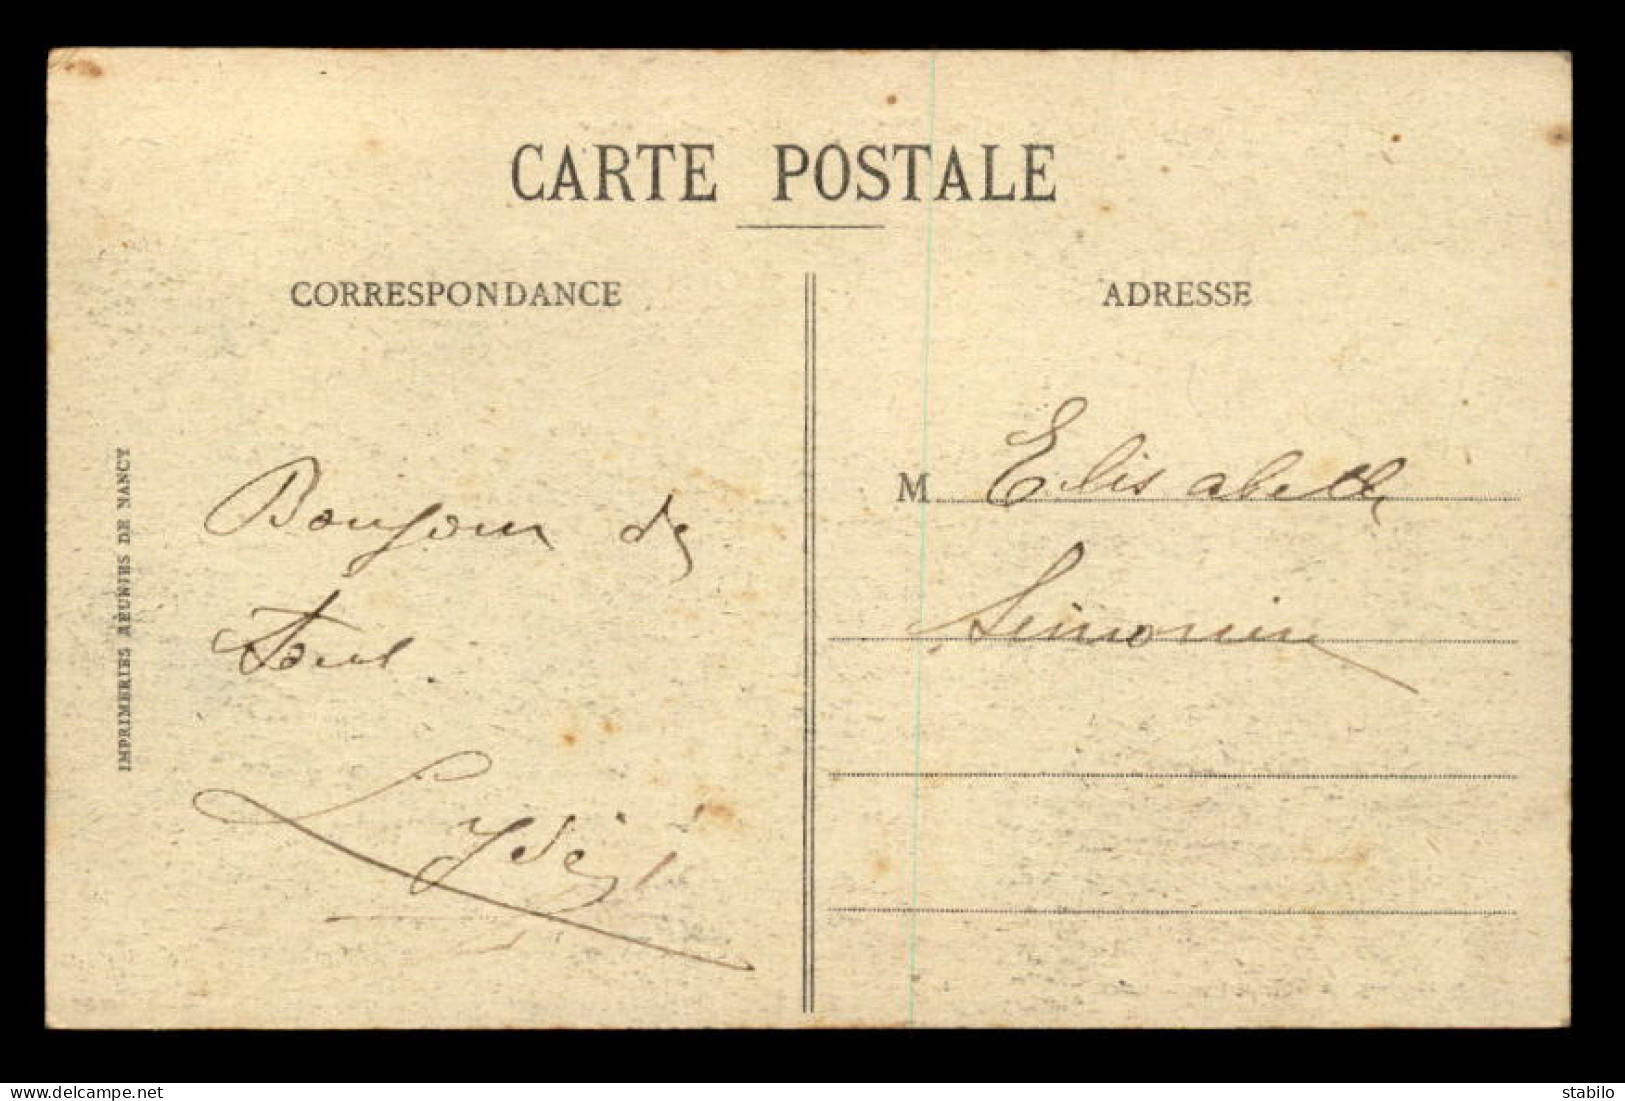 CARTE POSTALE
CORRESPONDANCE
ADRESSE
IMPRIMERIES RÉUNIES DE NANCY
Bonjour de
Toul.
M Elisabeth
Simonin
delcampe.net
stabilo